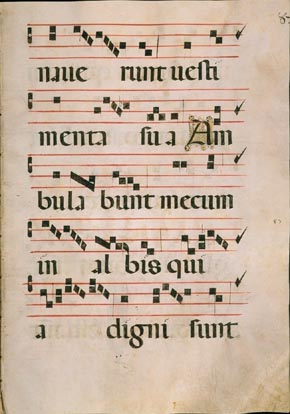 naue runt uesti
menta su a Am
bula bunt mecum
in al bis qui
a digni sunt